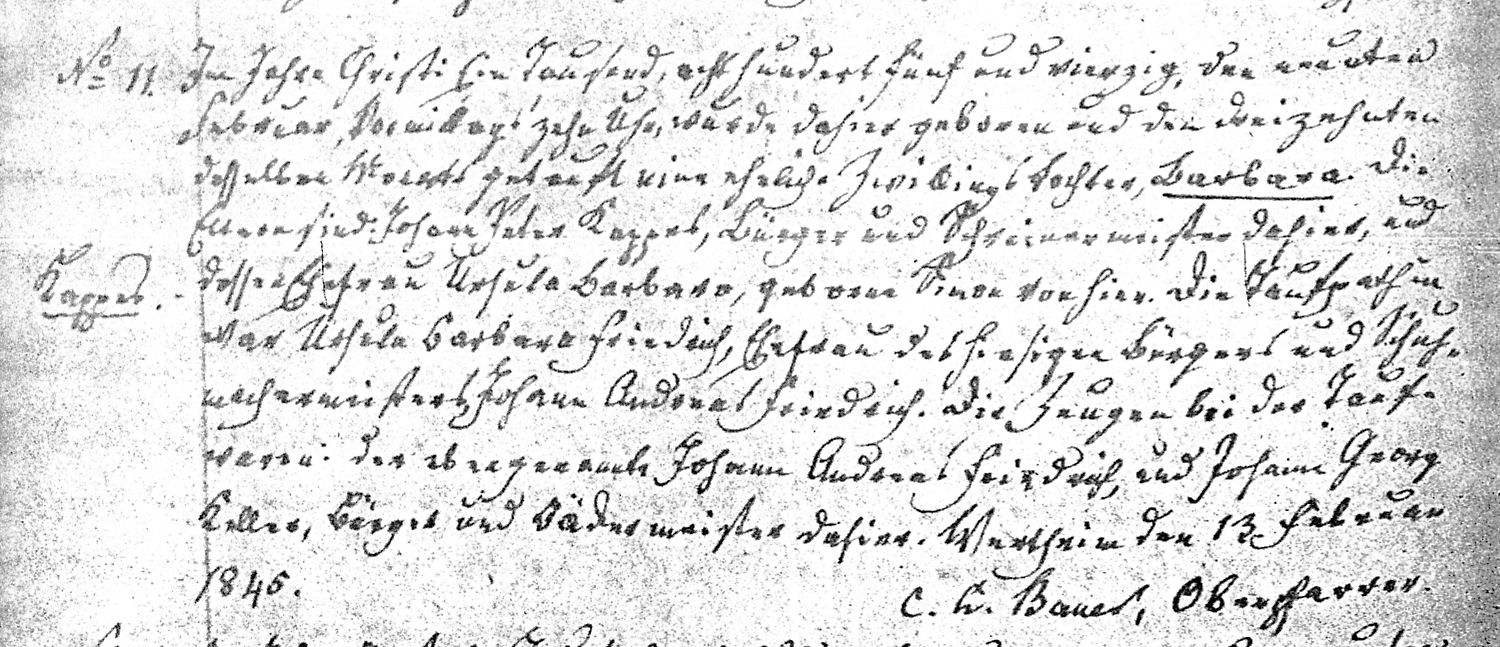 No 11. Im Jahre Christi Ein Tausend, acht hundert fünf und vierzig, den neunten
Februar, Vormittags zehn Uhr, wurde dahier geboren und den dreizehnten
desselben Monats getauft eine eheliche Zwillingstochter, Barbara. Die
Eltern sind: Johann Peter Kappes, Bürger und Schreinermeister dahier, und
Kappes. dessen Ehefrau Ursula Barbara, geborne Simon von hier. Die Taufpathin
war Ursula Barbara Friedrich, Ehefrau des hiesigen Bürgers und Schuh-
machermeisters, Johann Andreas Friedrich. Die Zeugen bei der Taufe
waren: der ebengenannte Johann Andreas Friedrich, und Johann Georg
Keller, Bürger und Bäckermeister dahier. Wertheim den 13. Februar
1845.
C. Bauer, Oberpfarrer.